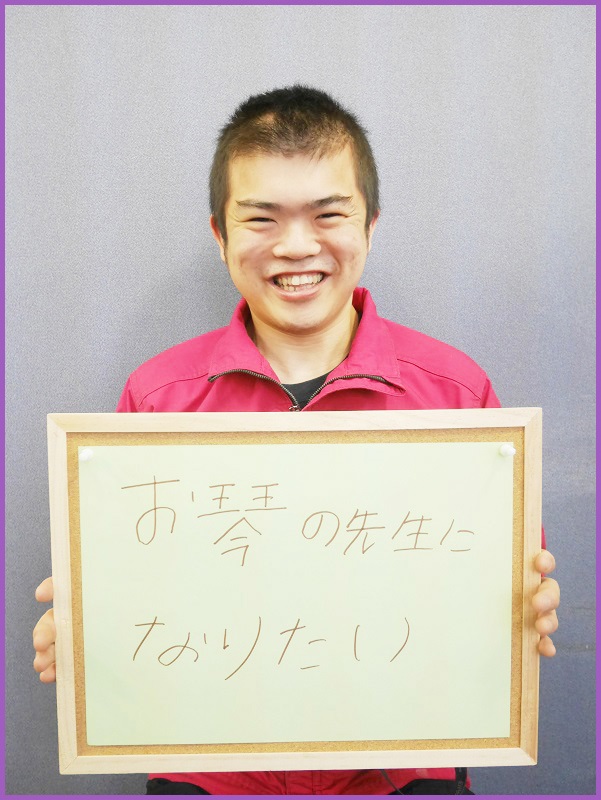 お琴の先生に
なりたい